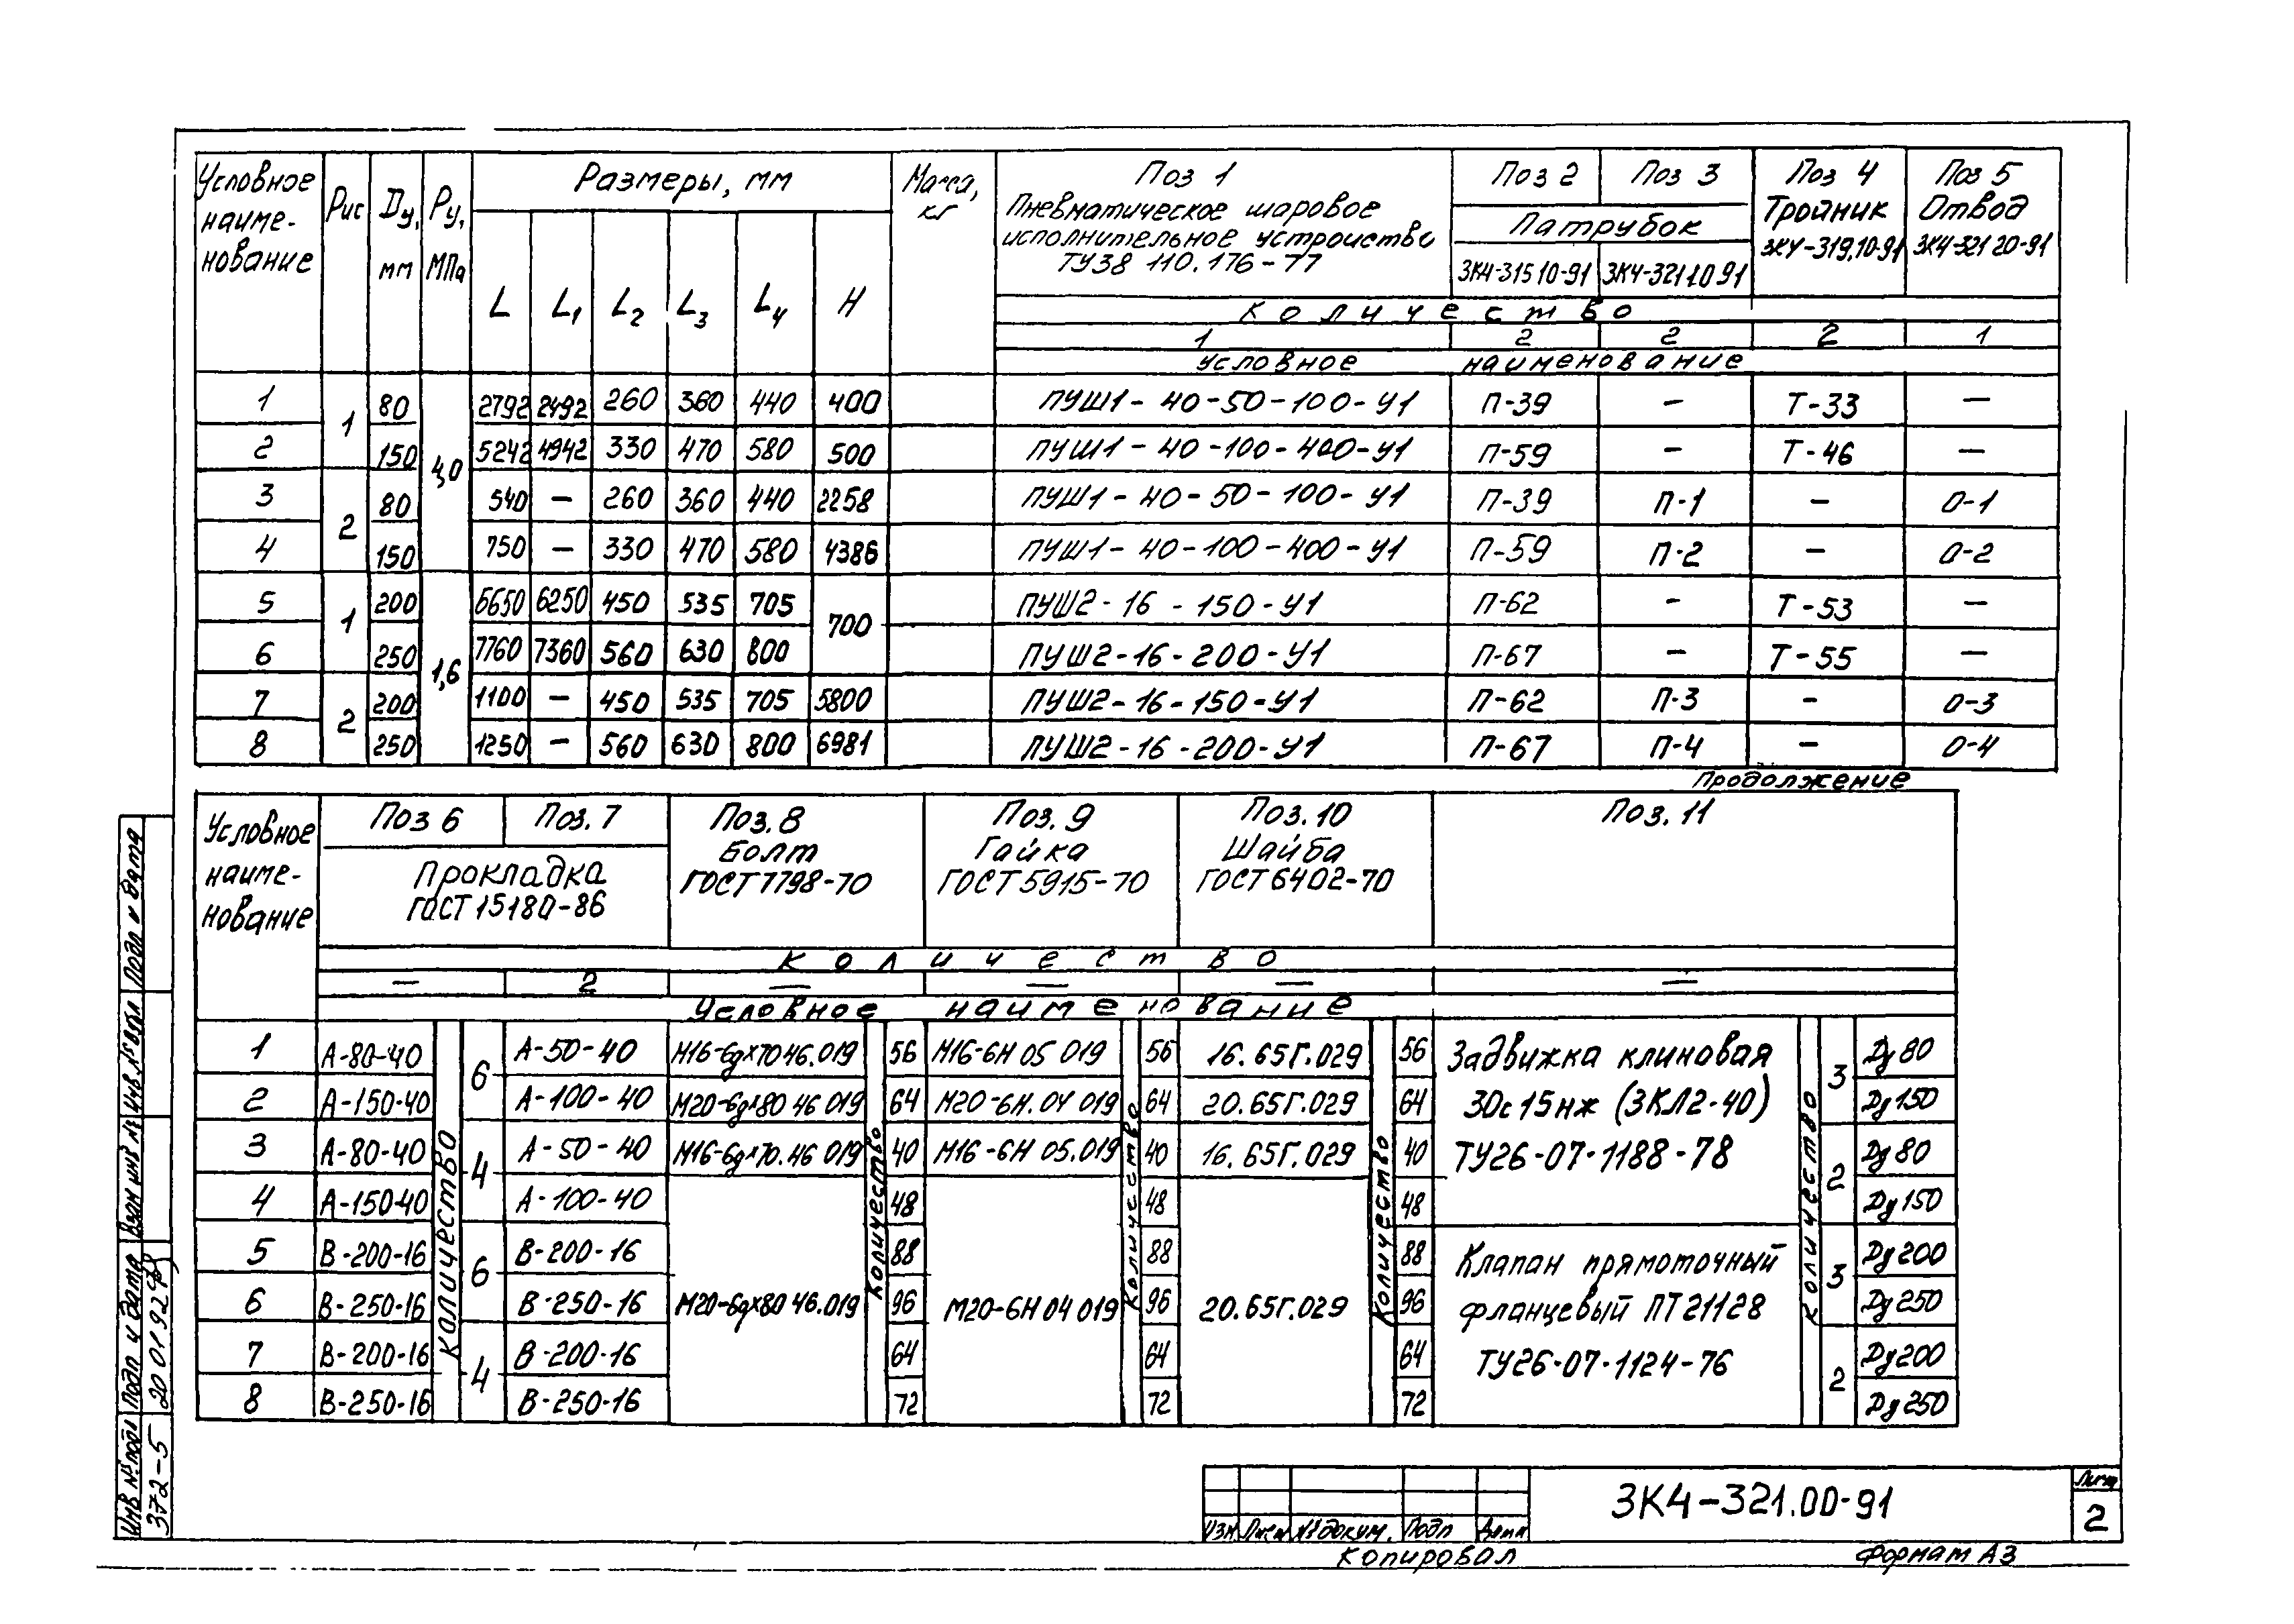 Условное наиме-нование | Рис | Ду, мм | Ру, МПа | Размеры, мм | Масса, кг | Поз 1 | Поз 2 | Поз 3 | Поз 4 | Поз 5
Пневматическое шаровое исполнительное устройство ТУ38 110.176-77 | Патрубок | Тройник | Отвод
L | L1 | L2 | L3 | L4 | H | ЗК4-315 10-91 | ЗК4-321 10 91 | ЗК4-319.10-91 | ЗК4-321 20-91
Количество
1 | 2 | 2 | 2 | 1
Условное наименование
1 | 1 | 80 | 4,0 | 2792 | 2492 | 260 | 360 | 440 | 400 | ПУШ1-40-50-100-У1 | П-39 | – | Т-33 | –
2 | 150 | 5242 | 4942 | 330 | 470 | 580 | 500 | ПУШ1-40-100-400-У1 | П-59 | – | Т-46 | –
3 | 2 | 80 | 540 | – | 260 | 360 | 440 | 2258 | ПУШ1-40-50-100-У1 | П-39 | П-1 | – | О-1
4 | 150 | 750 | – | 330 | 470 | 580 | 4386 | ПУШ1-40-100-400-У1 | П-59 | П-2 | – | О-2
5 | 1 | 200 | 1,6 | 6650 | 6250 | 450 | 535 | 705 | 700 | ПУШ2-16-150-У1 | П-62 | – | Т-53 | –
6 | 250 | 7760 | 7360 | 560 | 630 | 800 | ПУШ2-16-200-У1 | П-67 | – | Т-55 | –
7 | 2 | 200 | 1100 | – | 450 | 535 | 705 | 5800 | ПУШ2-16-150-У1 | П-62 | П-3 | – | О-3
8 | 250 | 1250 | – | 560 | 630 | 800 | 6981 | ПУШ2-16-200-У1 | П-67 | П-4 | – | О-4
Продолжение
Условное наиме-нование | Поз 6 | Поз. 7 | Поз. 8 | Поз. 9 | Поз. 10 | Поз. 11
Прокладка ГОСТ 15180-86 | Болт ГОСТ 7798-70 | Гайка ГОСТ 5915-70 | Шайба ГОСТ 6402-70
Количество
– | 2 | – | – | – | –
Условное наименование
1 | А-80-40 | Количество | 6 | А-50-40 | М16-6gх70 46.019 | Количество | 56 | М16-6Н 05 019 | Количество | 56 | 16.65Г.029 | Количество | 56 | Задвижка клиновая | Количество | 3 | Ду 80
2 | А-150-40 | А-100-40 | М20-6gх80 46 019 | 64 | М20-6Н.04 019 | 64 | 20.65Г.029 | 64 | 30с15нж (ЗКЛ2-40) | Ду 150
3 | А-80-40 | 4 | А-50-40 | М16-6gх70.46 019 | 40 | М16-6Н 05.019 | 40 | 16.65Г.029 | 40 | ТУ26-07-1188-78 | 2 | Ду 80
4 | А-150-40 | А-100-40 | 48 | 48 | 48 | Ду 150
5 | В-200-16 | 6 | В-200-16 | 88 | 88 | 88 | Клапан прямоточный | 3 | Ду 200
6 | В-250-16 | В-250-16 | М20-6gх80 46.019 | 96 | М20-6Н 04 019 | 96 | 20.65Г.029 | 96 | фланцевый ПТ 21128 | Ду 250
7 | В-200-16 | 4 | В-200-16 | 64 | 64 | 64 | ТУ26-07-1124-76 | 2 | Ду 200
8 | В-250-16 | В-250-16 | 72 | 72 | 72 | Ду 250
Инв № подл | Подп и дата | Взам инв № | Инв № дубл | Подп и дата
372-5 | 20 01 92
Изм | Лист | № докум. | Подп | Дата
ЗК4-321.00-91
Лист
2
Копировал
Формат А3